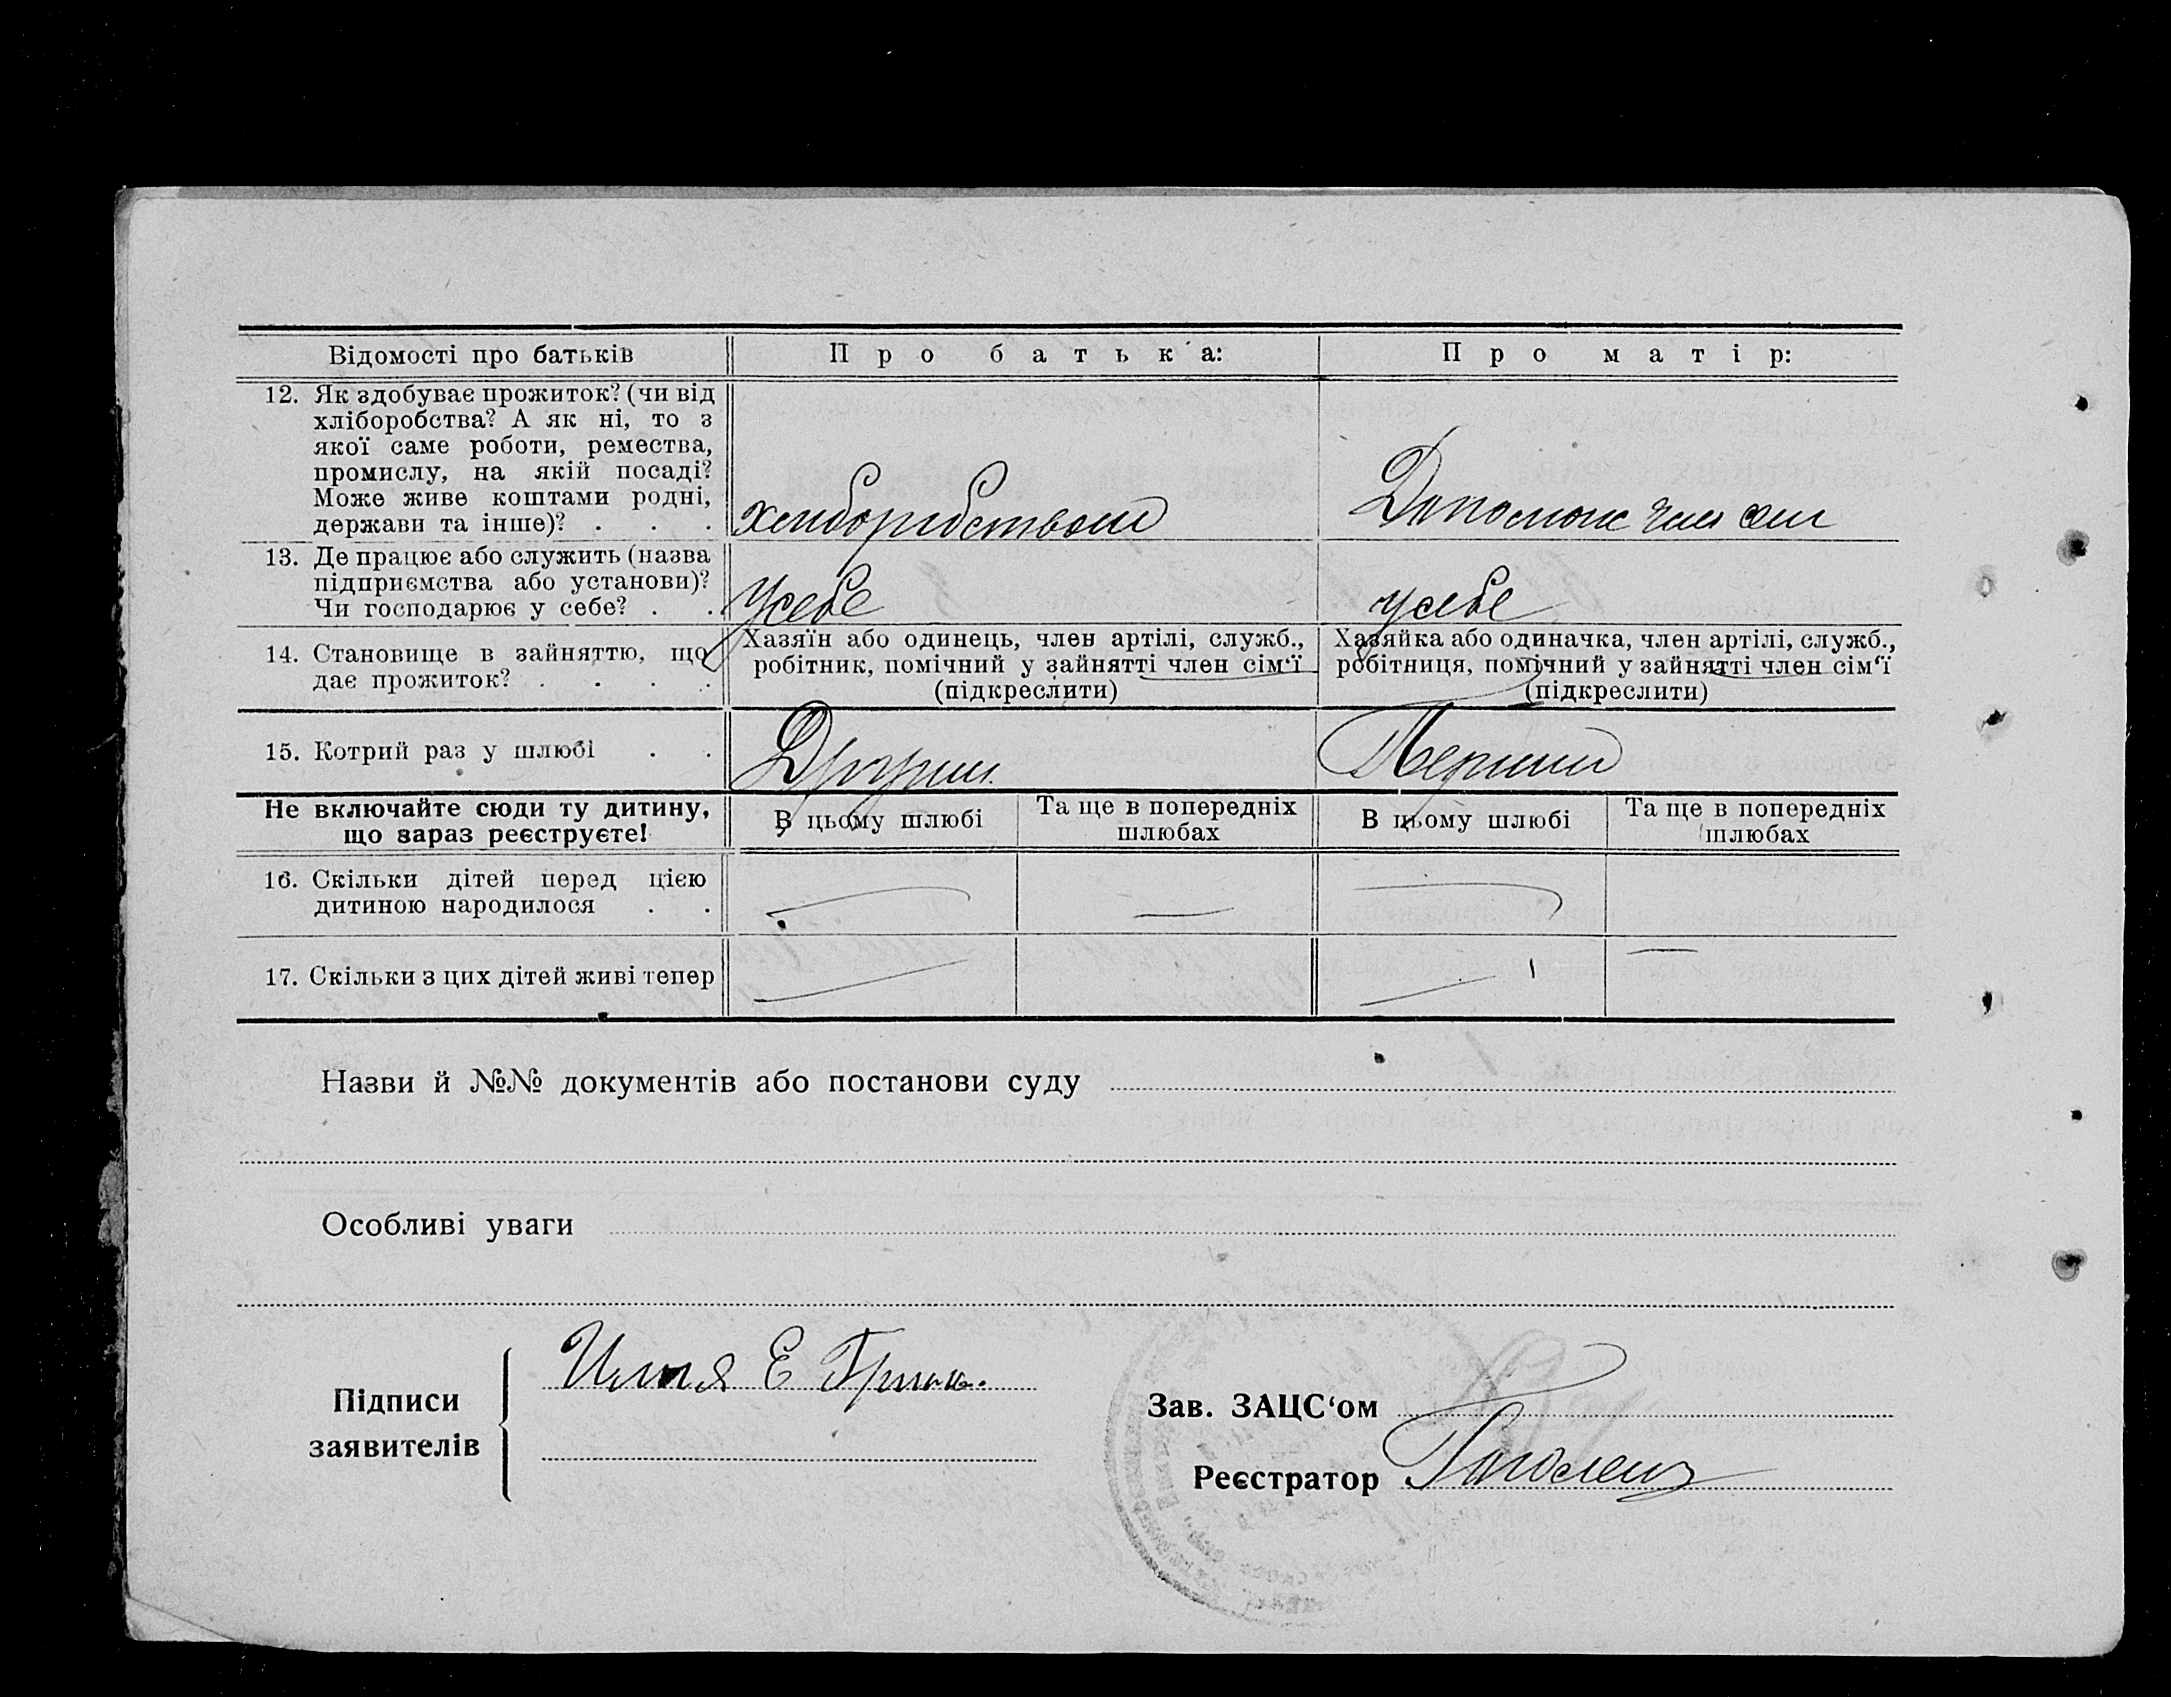 Відомості про батьків
Про батька:
Про матір:
12. Як здобуває прожиток? (чи від
хліборобства? А як ні, то з
якої саме роботи, ремества,
промислу, на якій посаді?
Може живе коштами родні,
держави та інше)? . . .
хлиборибством
Допомож член сим
13. Де працює або служить (назва
підприємства або установи)?
Чи господарює у себе? . .
Усебе
усебе
14. Становище в зайняттю, що
дає прожиток? . . . .
Хазяїн або одинець, член артілі, служб.,
робітник, помічний у зайнятті член сім'ї
(підкреслити)
Хазяйка або одиначка, член артілі, служб.,
робітниця, помічний у зайнятті член сім'ї
(підкреслити)
15. Котрий раз у шлюбі . .
Другий
Перший
Не включайте сюди ту дитину,
що зараз реєструєте!
В цьому шлюбі
Та ще в попередніх
шлюбах
В цьому шлюбі
Та ще в попередніх
шлюбах
16. Скільки дітей перед цією
дитиною народилося . .
—
—
—
17. Скільки з цих дітей живі тепер
—
—
—
Назви й №№ документів або постанови суду
Особливі уваги
Підписи
заявителів
Илья Е
Зав. ЗАЦС'ом
Реєстратор